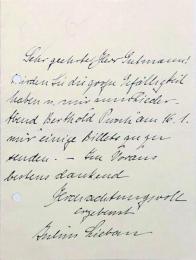 Sehr geehrter Herr Gutmann!
Würden Sie die große Gefälligkeit
haben u. mir zum Lieder-
Abend Berthold am 16. 1.
mir einige Billets zu zu
senden. – Im Voraus
bestens dankend
Hochachtungsvoll
ergebenst
Julius Lieban